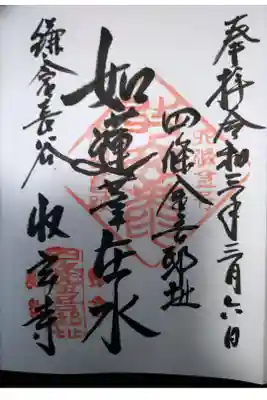 奉拝令和三年三月六日
四條金吾邸址
如蓮華在水
鎌倉長谷
収玄寺